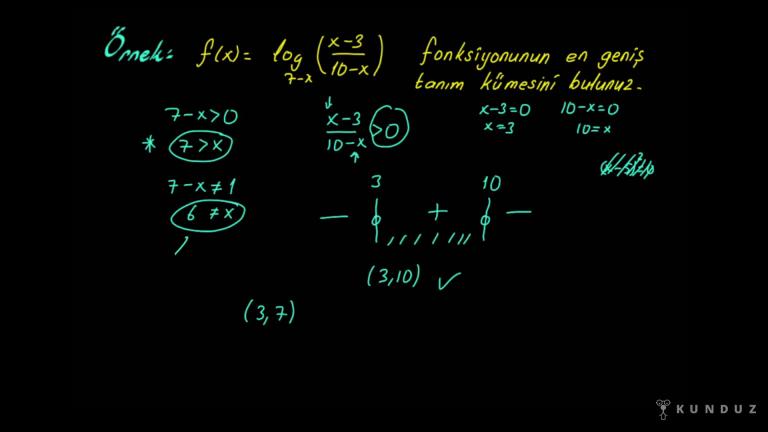 Örnek: f(x) = log_{7-x} ((x-3)/(10-x)) fonksiyonunun en geniş
tanım kümesini bulunuz.
7-x>0
* 7 > x
7-x≠1
6 ≠ x
(x-3)/(10-x) > 0
x-3=0
x=3
10-x=0
10=x
3 10
— + —
(3,10) ✓
(3,7)
KUNDUZ